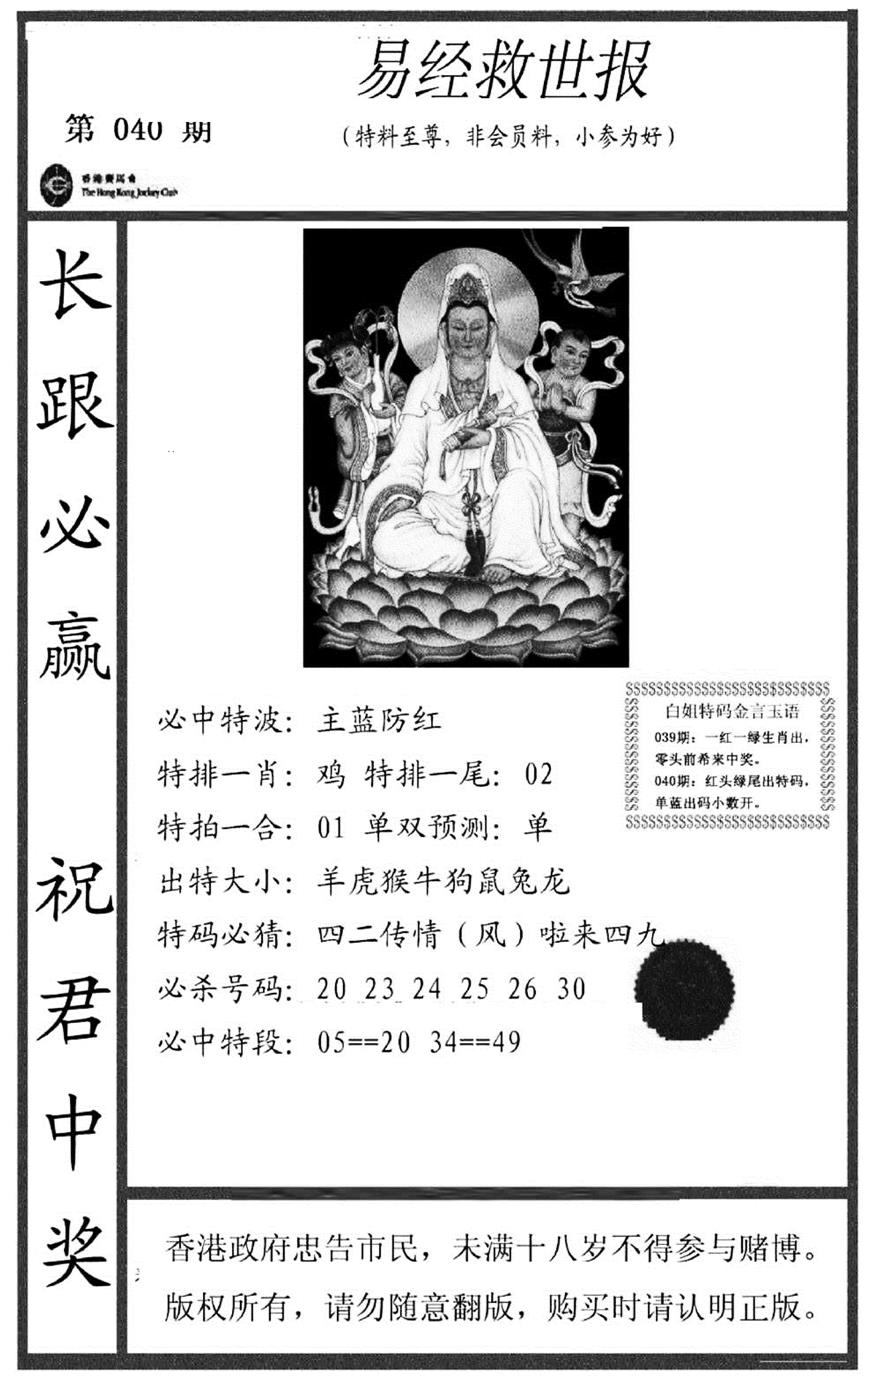 易经救世报
第 040 期
（特料至尊，非会员料，小参为好）
香港賽馬會
The Hong Kong Jockey Club
长跟必赢 祝君中奖
必中特波：主蓝防红
特排一肖：鸡 特排一尾：02
特拍一合：01 单双预测：单
出特大小：羊虎猴牛狗鼠兔龙
特码必猜：四二传情（风）啦来四九
必杀号码：20 23 24 25 26 30
必中特段：05==20 34==49
白姐特码金言玉语
039期：一红一绿生肖出，
零头前希来中奖。
040期：红头绿尾出特码，
单蓝出码小数开。
香港政府忠告市民，未满十八岁不得参与赌博。
版权所有，请勿随意翻版，购买时请认明正版。